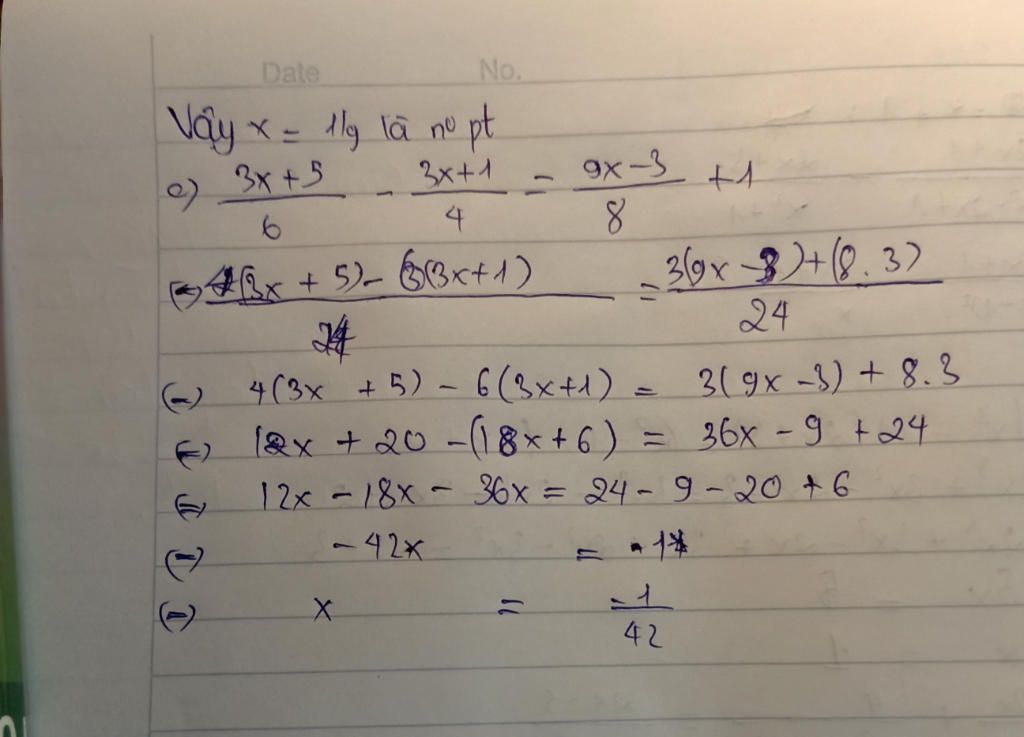 Date No.
Vậy x = 11/9 là no pt
c) (3x + 5)/6 - (3x+1)/4 = (9x-3)/8 + 1
(=) (4(3x + 5) - 6(3x+1))/24 = (3(9x - 3) + (8.3))/24
(=) 4(3x + 5) - 6(3x+1) = 3(9x - 3) + 8.3
(=) 12x + 20 - (18x + 6) = 36x - 9 + 24
(=) 12x - 18x - 36x = 24 - 9 - 20 + 6
(=) - 42x = 1
(=) x = -1/42